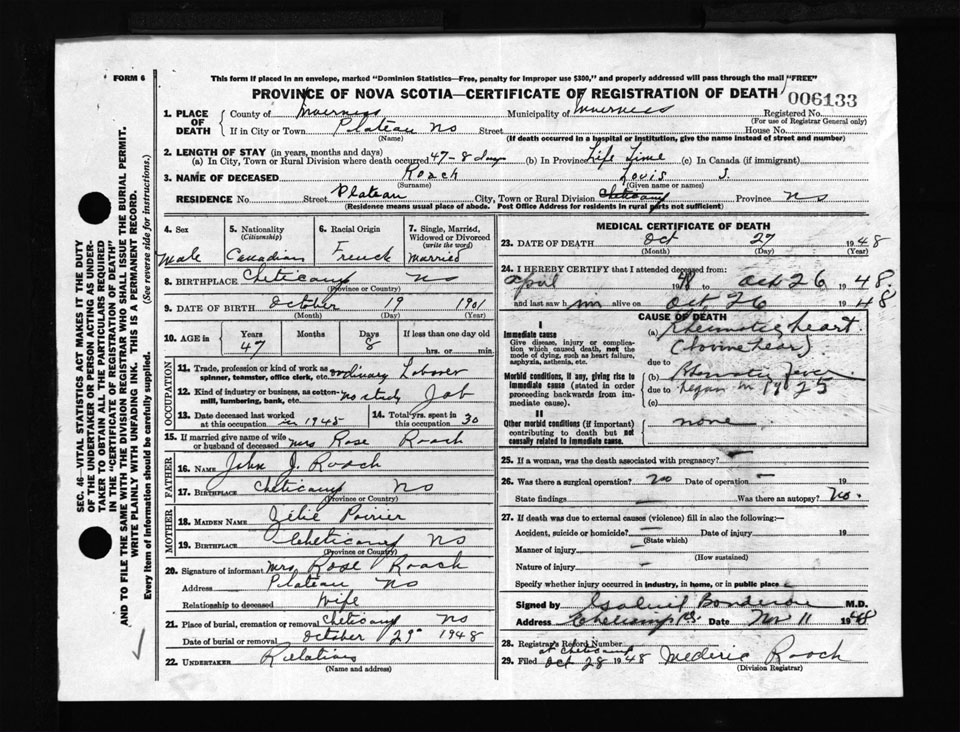 FORM 6
This form if placed in an envelope, marked "Dominion Statistics—Free, penalty for improper use $300," and properly addressed will pass through the mail "FREE"
PROVINCE OF NOVA SCOTIA—CERTIFICATE OF REGISTRATION OF DEATH
006133
1. PLACE OF DEATH
County of Inverness Municipality of Inverness Registered No.
(For use of Registrar General only)
If in City or Town Plateau NS Street House No.
(Name) (If death occurred in a hospital or institution, give the name instead of street and number)
2. LENGTH OF STAY (in years, months and days)
(a) In City, Town or Rural Division where death occurred 47-8 days (b) In Province Life Time (c) In Canada (if immigrant)
3. NAME OF DECEASED Roach Louis J.
(Surname) (Given name or names)
RESIDENCE No. Street Plateau City, Town or Rural Division Cheticamp Province NS
(Residence means usual place of abode. Post Office Address for residents in rural parts not sufficient)
4. Sex Male
5. Nationality (Citizenship) Canadian
6. Racial Origin French
7. Single, Married, Widowed or Divorced (write the word) Married
8. BIRTHPLACE Cheticamp NS
(Province or Country)
9. DATE OF BIRTH October 19 1901
(Month) (Day) (Year)
10. AGE in Years 47 Months Days 8 If less than one day old hrs. or min.
OCCUPATION
11. Trade, profession or kind of work as spinner, teamster, office clerk, etc. ordinary Laborer
12. Kind of industry or business, as cotton-mill, lumbering, bank, etc. no study Job
13. Date deceased last worked at this occupation in 1948
14. Total yrs. spent in this occupation 30
15. If married give name of wife or husband of deceased Mrs Rose Roach
FATHER
16. NAME John J. Roach
17. BIRTHPLACE Cheticamp NS
(Province or Country)
MOTHER
18. MAIDEN NAME Zélie Poirier
19. BIRTHPLACE Cheticamp NS
(Province or Country)
20. Signature of informant Mrs Rose Roach
Address Plateau NS
Relationship to deceased Wife
21. Place of burial, cremation or removal Cheticamp NS
Date of burial or removal October 29 1948
22. UNDERTAKER Relations
(Name and address)
MEDICAL CERTIFICATE OF DEATH
23. DATE OF DEATH Oct 27 1948
(Month) (Day) (Year)
24. I HEREBY CERTIFY that I attended deceased from:
April 1948 to Oct 26 1948.
and last saw h im alive on Oct 26 1948
CAUSE OF DEATH
I
Immediate cause
Give disease, injury or complication which caused death, not the mode of dying, such as heart failure, asphyxia, asthenia, etc.
(a) Rheumatic heart
due to
Morbid conditions, if any, giving rise to immediate cause (stated in order proceeding backwards from immediate cause).
(b) Rheumatic Fever
due to began in 1925
(c)
II
Other morbid conditions (if important) contributing to death but not causally related to immediate cause.
none
25. If a woman, was the death associated with pregnancy?
26. Was there a surgical operation? No Date of operation 19
State findings Was there an autopsy? No.
27. If death was due to external causes (violence) fill in also the following:—
Accident, suicide or homicide? Date of injury 19
(State which)
Manner of injury
(How sustained)
Nature of injury
Specify whether injury occurred in industry, in home, or in public place
Signed by M.D.
Address Cheticamp NS. Date Nov 11 1948
28. Registrar's Record Number
at Cheticamp
29. Filed Oct 28 1948 Mederic Roach
(Division Registrar)
SEC. 46—VITAL STATISTICS ACT MAKES IT THE DUTY
OF THE UNDERTAKER OR PERSON ACTING AS UNDER-
TAKER TO OBTAIN ALL THE PARTICULARS REQUIRED
IN THE "CERTIFICATE OF REGISTRATION OF DEATH"
AND TO FILE THE SAME WITH THE DIVISION REGISTRAR WHO SHALL ISSUE THE BURIAL PERMIT.
WRITE PLAINLY WITH UNFADING INK. THIS IS A PERMANENT RECORD.
Every item of information should be carefully supplied. (See reverse side for instructions.)